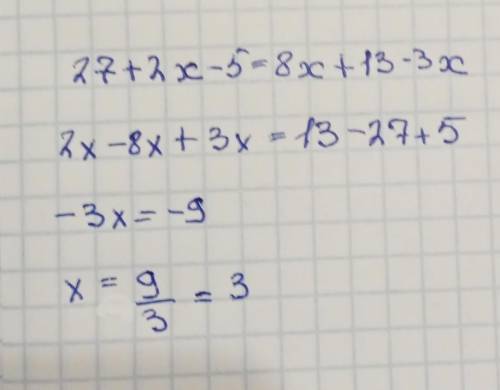 27+2x-5=8x+13-3x
2x-8x+3x=13-27+5
-3x=-9
x = 9/3 = 3